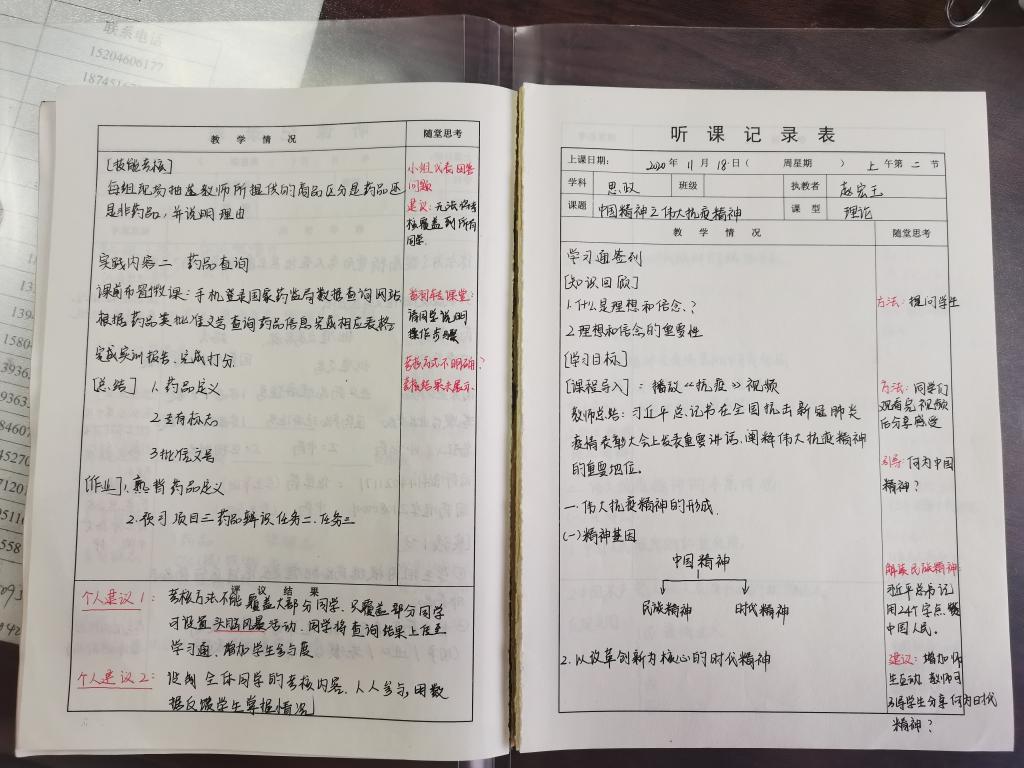 联系电话
15204606177
教 学 情 况
随堂思考
[技能考核]
每组配方抽选教师所提供的商品区分是药品还
是非药品，并说明理由
实践内容二 药品查询
课前布置微课：手机登录国家药监局数据查询网站
根据药品类批准文号查询药品信息完成相应表格
完成实训报告、完成打分.
[总结] 1.药品定义
2.专有标志
3.批准文号
[作业] 1.熟背药品定义
2.预习项目二药品辩识任务二、任务三
小组代表回答
问题
建议：无法将考
核覆盖到所有
同学.
翻转课堂：
请同学说明
操作步骤
考核方式不明确？
考核结果未展示.
评 议 结 果
个人建议1： 考核方法不能覆盖大部分同学，只覆盖部分同学
可设置头脑风暴活动，同学将查询结果上传至
学习通，增加学生参与度
个人建议2： 设制全体同学的考核内容、人人参与，用数
据反馈学生掌握情况
听 课 记 录 表
上课日期： 2020年 11月 18日（ 周星期 ） 上午第二节
学科 思政 班级 执教者 赵宏玉
课题 中国精神之伟大抗疫精神 课 型 理论
教 学 情 况
随堂思考
学习通签到
[知识回顾]
1.什么是理想和信念？
2.理想和信念的重要性
[学习目标]
[课程导入]：播放《抗疫》视频
教师总结：习近平总书记在全国抗击新冠肺炎
疫情表彰大会上发表重要讲话，阐释伟大抗疫精神
的重要地位。
一.伟大抗疫精神的形成.
(一)精神基因
中国精神
民族精神 时代精神
2.以改革创新为核心的时代精神
方法：提问学生
方法：同学们
观看完视频
后分享感受
引导：何为中国
精神？
解读民族精神
习近平总书记
用24个字点赞
中国人民。
建议：增加师
生互动 教师可
引导学生分享何为时代
精神？